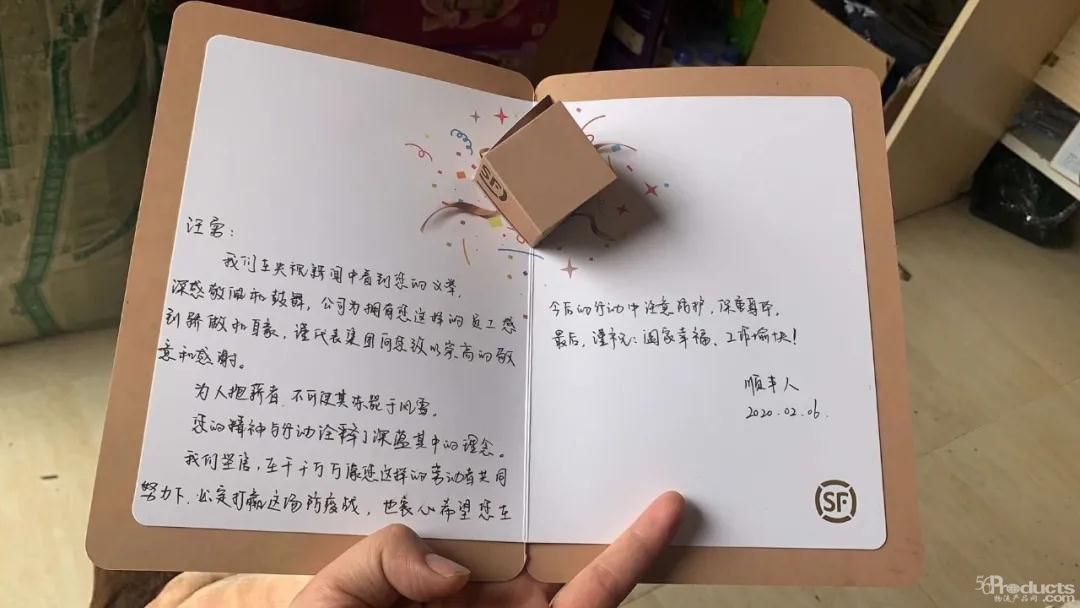 汪勇：
我们在央视新闻中看到您的义举，
深感敬佩和鼓舞，公司为拥有您这样的员工感
到骄傲和自豪，谨代表集团向您致以崇高的敬
意和感谢。
为人抱薪者，不可使其冻毙于风雪。
您的精神与行动诠释了深蕴其中的理念。
我们坚信，在千千万万像您这样的劳动者共同
努力下，必定打赢这场防疫战，也衷心希望您在
今后的行动中注意防护，保重身体，
最后，谨祝：阖家幸福、工作愉快！
顺丰人
2020.02.06.
SF
SF
56Products
物流产品网.com